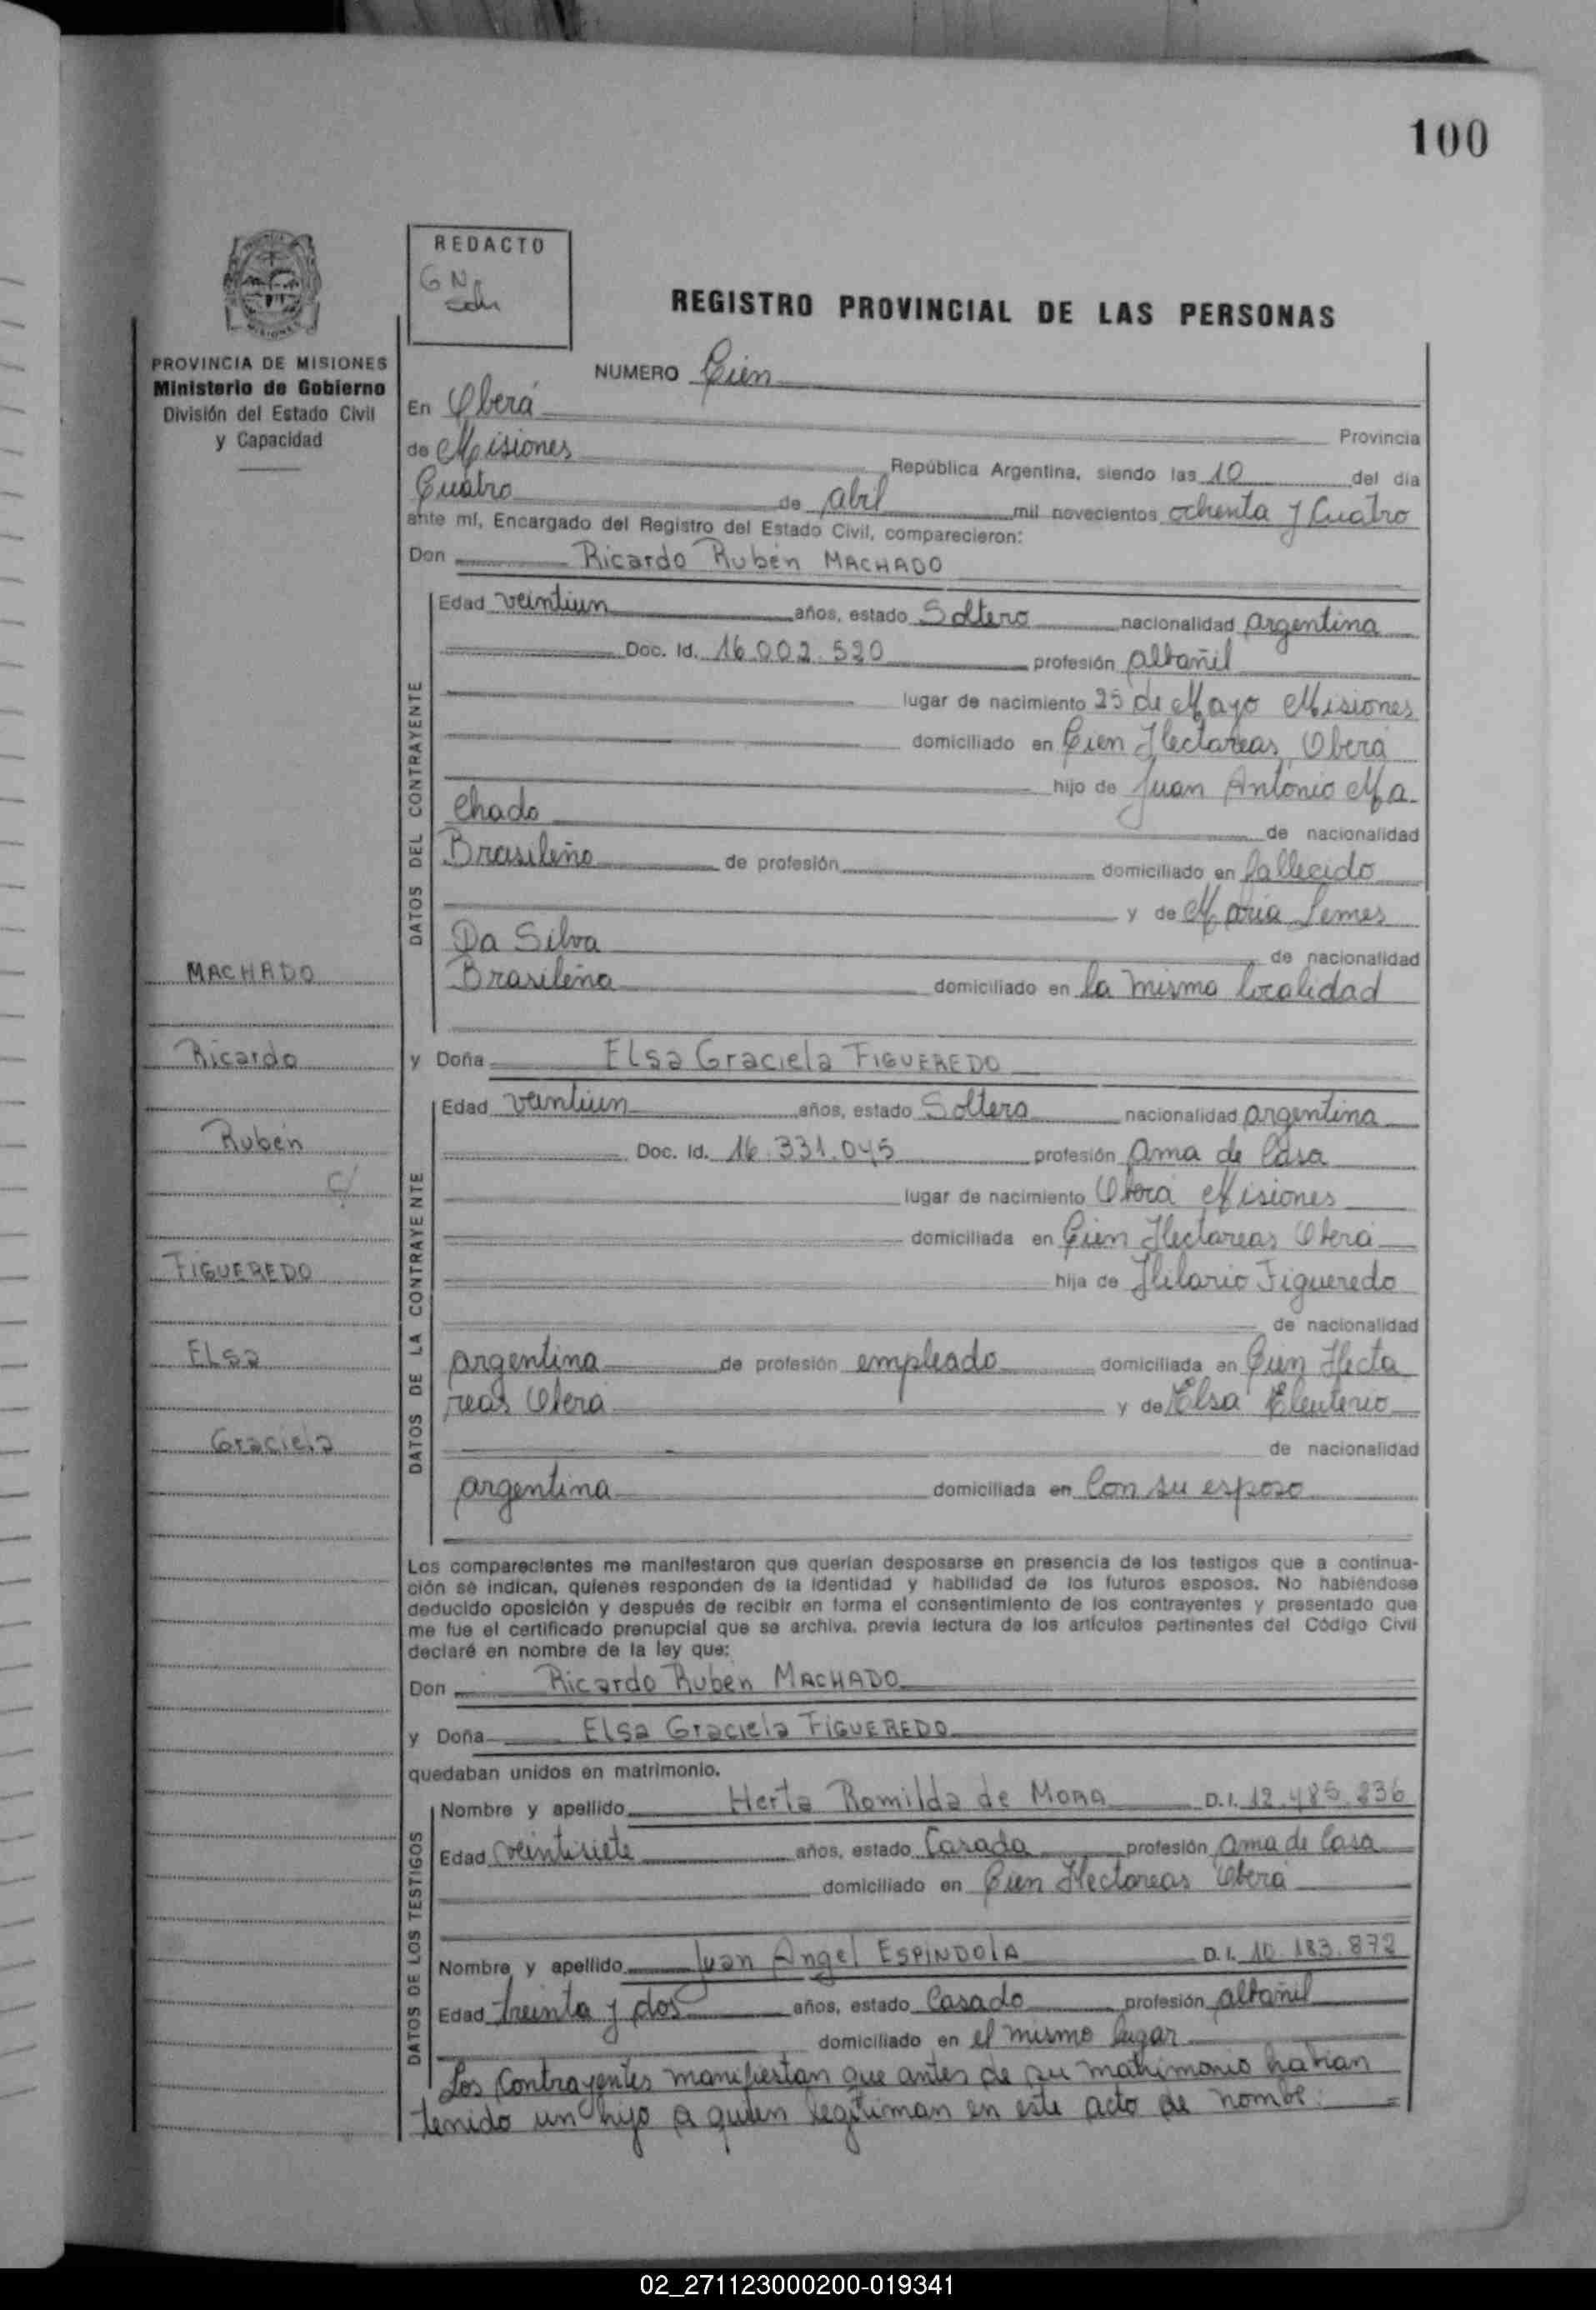 100
REDACTO
G N.
REGISTRO PROVINCIAL DE LAS PERSONAS
PROVINCIA DE MISIONES
Ministerio de Gobierno
División del Estado Civil
y Capacidad
NUMERO Cien
En Oberá
Provincia
de Misiones República Argentina, siendo las 10 del día
Cuatro de abril mil novecientos ochenta y Cuatro
ante mí, Encargado del Registro del Estado Civil, comparecieron:
Don Ricardo Rubén MACHADO
DATOS DEL CONTRAYENTE
Edad veintiun años, estado Soltero nacionalidad argentina
Doc. Id. 16.002.520 profesión albañil
lugar de nacimiento 25 de Mayo Misiones
domiciliado en Cien Hectareas, Oberá
hijo de Juan Antonio Ma
chado
de nacionalidad
Brasileño de profesión domiciliado en fallecido
y de Maria Lemes
Da Silva
de nacionalidad
Brasileña domiciliado en la misma localidad
y Doña Elsa Graciela FIGUEREDO
DATOS DE LA CONTRAYENTE
Edad veintiun años, estado Soltera nacionalidad argentina
Doc. Id. 16.331.045 profesión Ama de Casa
lugar de nacimiento Oberá Misiones
domiciliada en Cien Hectareas Oberá
hija de Hilario Figueredo
de nacionalidad
argentina de profesión empleado domiciliada en Cien Hecta
reas Oberá y de Elsa Eleuterio
de nacionalidad
argentina domiciliada en Con su esposo
MACHADO
Ricardo
Rubén
c/
FIGUEREDO
Elsa
Graciela
Los comparecientes me manifestaron que querían desposarse en presencia de los testigos que a continua-
ción se indican, quienes responden de la identidad y habilidad de los futuros esposos. No habiéndose
deducido oposición y después de recibir en forma el consentimiento de los contrayentes y presentado que
me fue el certificado prenupcial que se archiva, previa lectura de los artículos pertinentes del Código Civil
declaré en nombre de la ley que:
Don Ricardo Ruben MACHADO
y Doña Elsa Graciela FIGUEREDO
quedaban unidos en matrimonio.
DATOS DE LOS TESTIGOS
Nombre y apellido Herta Romilda de MORA D.I. 12.485.236
Edad veintisiete años, estado Casada profesión ama de Casa
domiciliado en Cien Hectareas Oberá
Nombre y apellido Juan Angel ESPINDOLA D.I. 10.183.872
Edad treinta y dos años, estado Casado profesión albañil
domiciliado en el mismo lugar
Los Contrayentes manifiestan que antes de su matrimonio habian
tenido un hijo a quien legitiman en este acto de nombe:
02_271123000200-019341